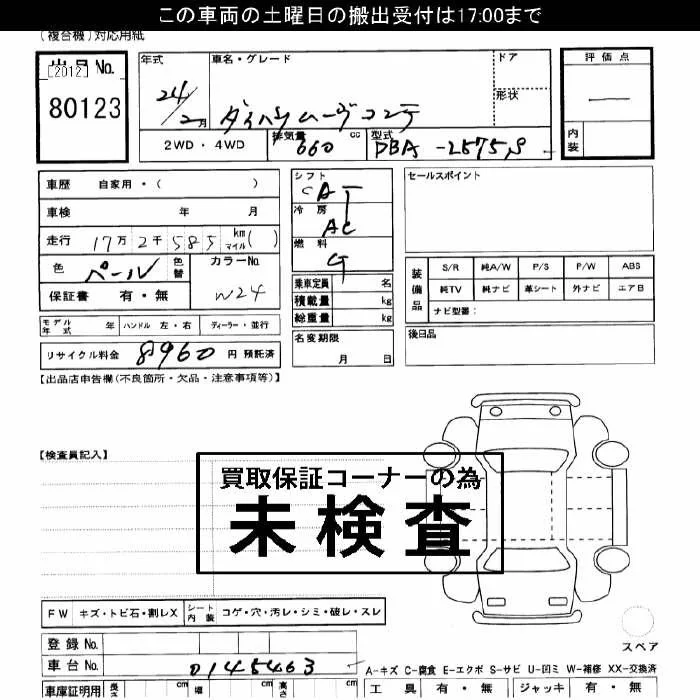 この車両の土曜日の搬出受付は17:00まで
(複合機)対応用紙
出品No.
[2012]
80123
年式
24/2月
車名・グレード
ダイハツムーヴコンテ
ドア
形状
評価点
内装
2WD・4WD
排気量 660 cc
型式 DBA-L575S
車歴 自家用・( )
車検 年 月
走行 17万2千585 km マイル( )
色 パール 色替
カラーNo. W24
保証書 有・無
シフト CAT
冷房 AC
燃料 G
乗車定員 名
積載量 kg
総重量 kg
セールスポイント
装備品
S/R 純A/W P/S P/W ABS
純TV 純ナビ 革シート 外ナビ エアB
ナビ型番:
モデル年式 年 ハンドル 左・右 ディーラー・並行
リサイクル料金 8960 円 預託済
名変期限 月 日
後日品
【出品店申告欄(不良箇所・欠品・注意事項等)】
【検査員記入】
買取保証コーナーの為
未検査
FW キズ・トビ石・割レX シート内装 コゲ・穴・汚レ・シミ・破レ・スレ
スペア
登録No.
車台No. 0145463
A-キズ C-腐食 E-エクボ S-サビ U-凹ミ W-補修 XX-交換済
車庫証明用 長さ cm 幅 cm 高さ cm
工具 有・無 ジャッキ 有・無